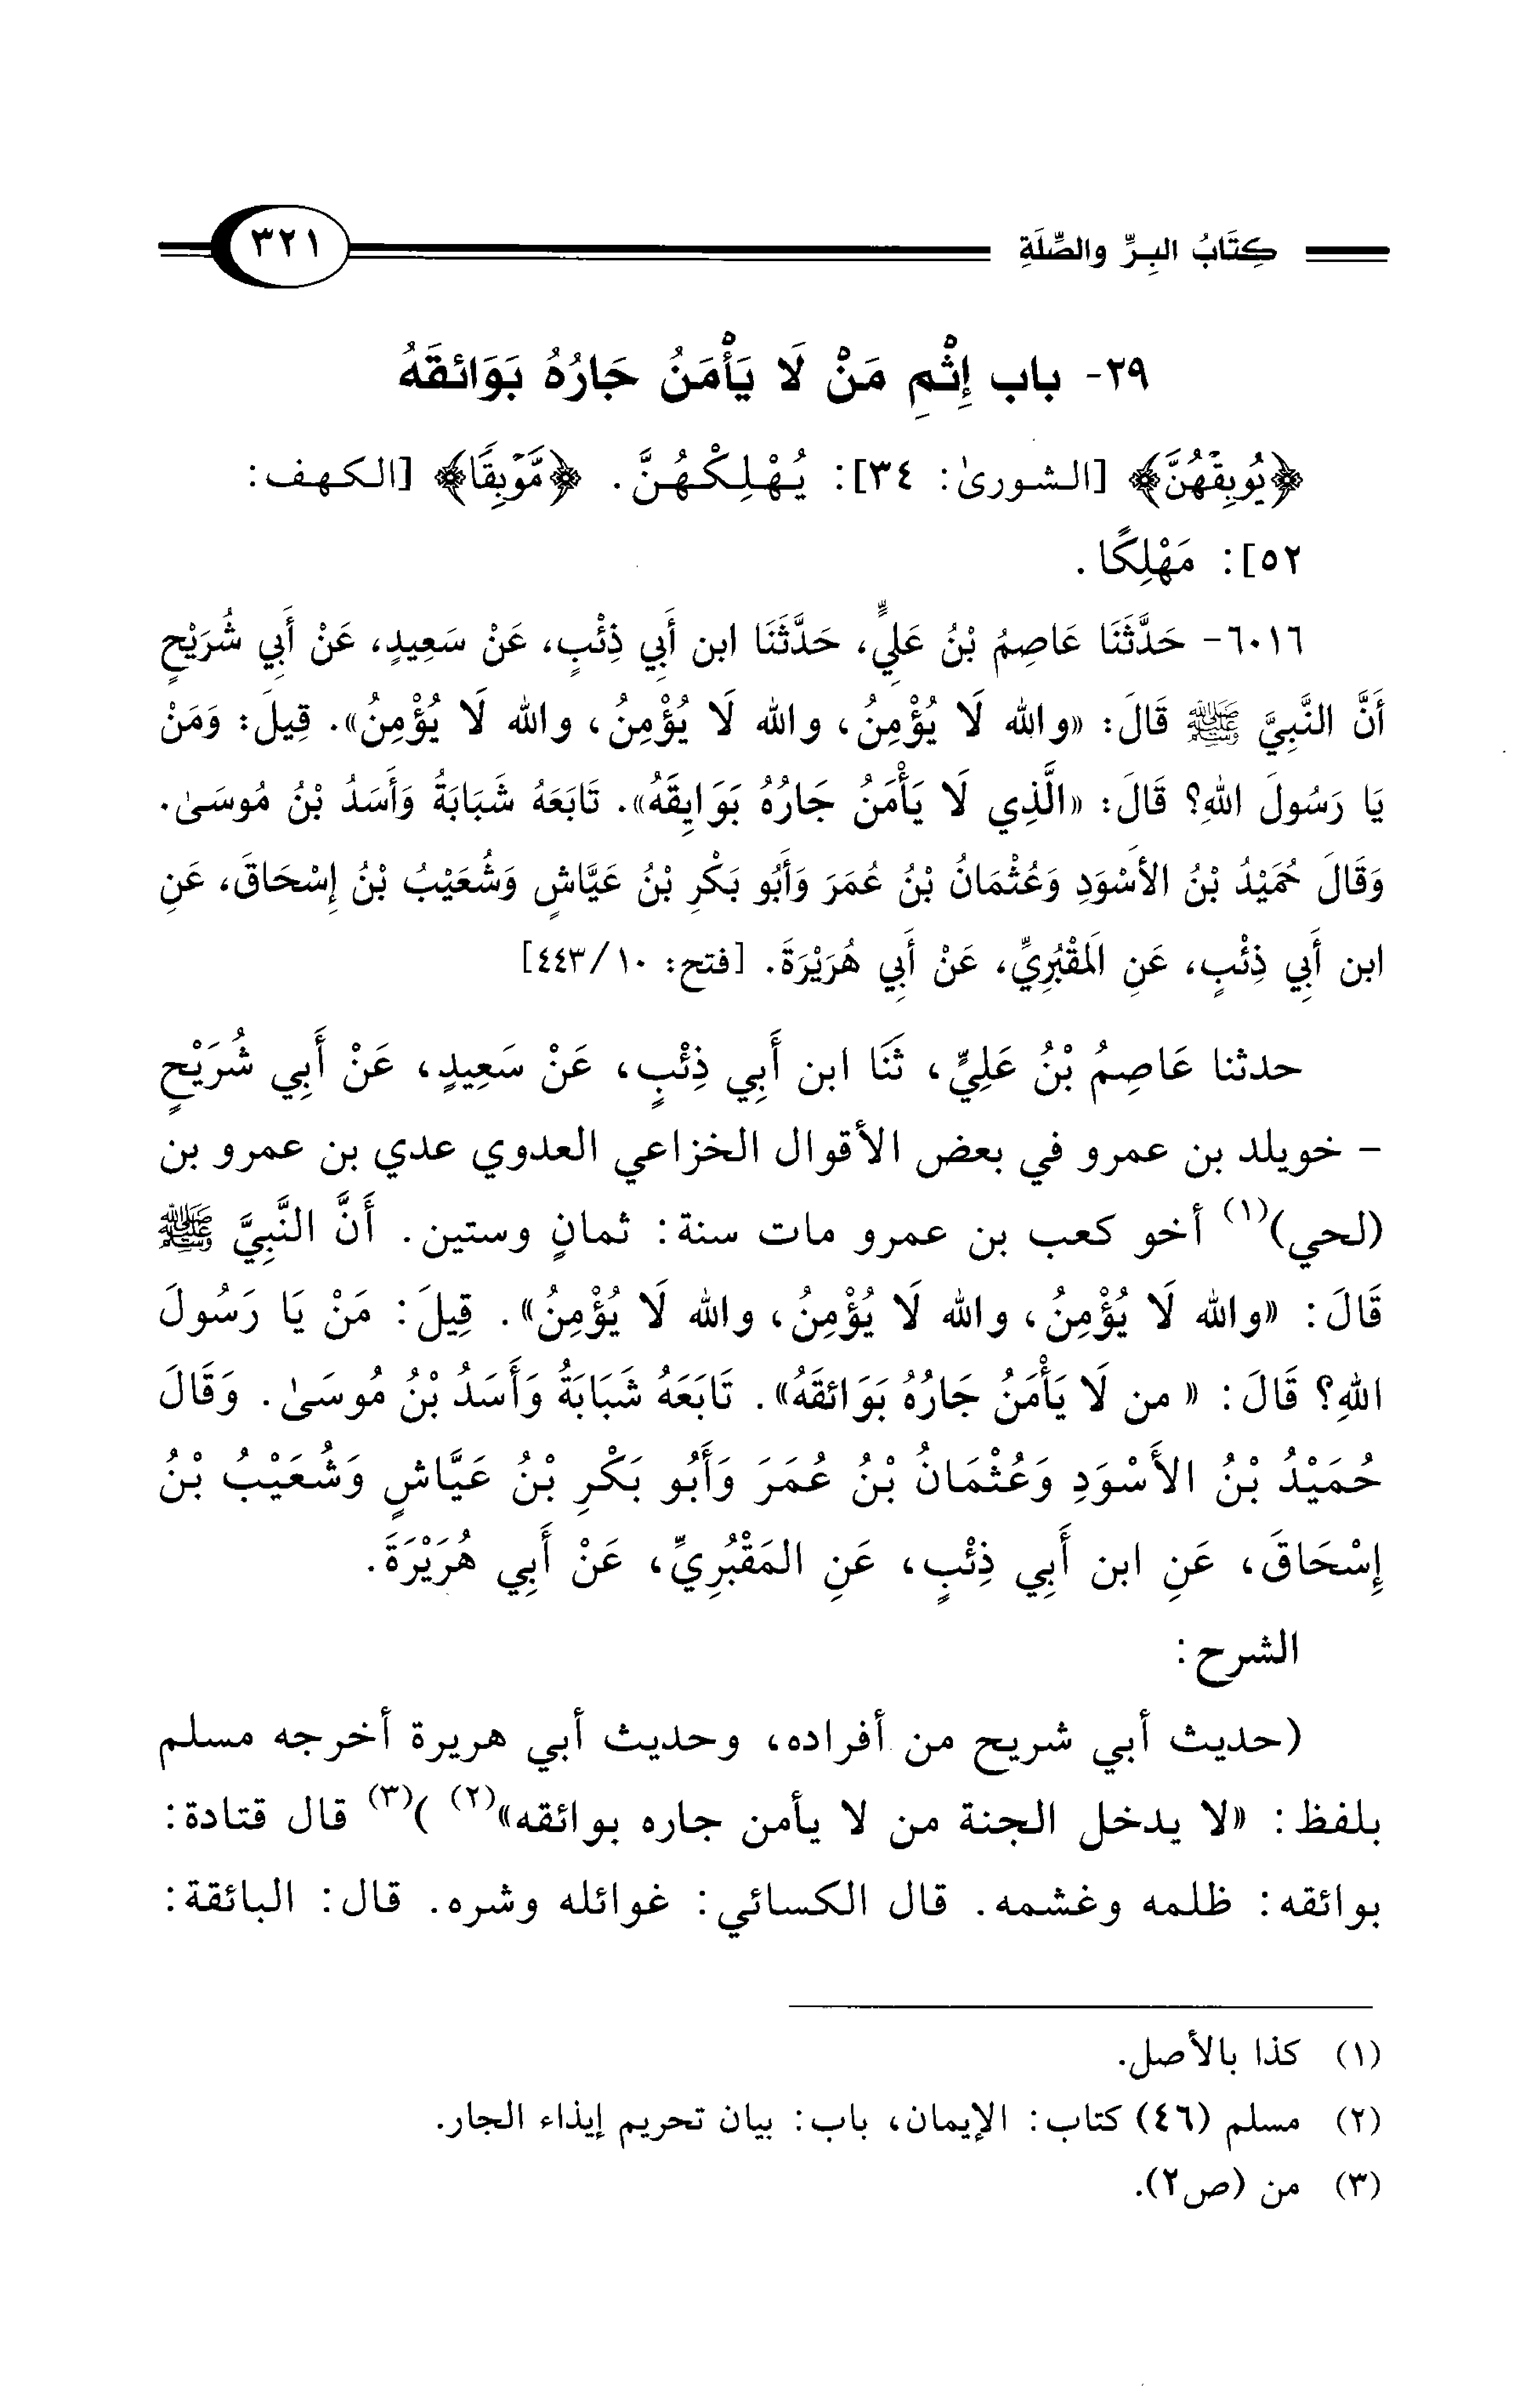 كِتَابُ البِرِّ والصِّلَةِ ٣٢١
٢٩- باب إِثْمِ مَنْ لَا يَأْمَنُ جَارُهُ بَوَائقَهُ
﴿يُوبِقْهُنَّ﴾ [الشورىٰ: ٣٤]: يُهْلِكْهُنَّ. ﴿مَّوْبِقًا﴾ [الكهف:
٥٢]: مَهْلِكًا.
٦٠١٦- حَدَّثَنَا عَاصِمُ بْنُ عَلِيٍّ، حَدَّثَنَا ابن أَبِي ذِئْبٍ، عَنْ سَعِيدٍ، عَنْ أَبِي شُرَيْحٍ
أَنَّ النَّبِيَّ ﷺ قَالَ: «والله لَا يُؤْمِنُ، والله لَا يُؤْمِنُ، والله لَا يُؤْمِنُ». قِيلَ: وَمَنْ
يَا رَسُولَ اللهِ؟ قَالَ: «الَّذِي لَا يَأْمَنُ جَارُهُ بَوَايِقَهُ». تَابَعَهُ شَبَابَةُ وَأَسَدُ بْنُ مُوسَىٰ.
وَقَالَ حُمَيْدُ بْنُ الأَسْوَدِ وَعُثْمَانُ بْنُ عُمَرَ وَأَبُو بَكْرِ بْنُ عَيَّاشٍ وَشُعَيْبُ بْنُ إِسْحَاقَ، عَنِ
ابن أَبِي ذِئْبٍ، عَنِ المَقْبُرِيِّ، عَنْ أَبِي هُرَيْرَةَ. [فتح: ١٠/٤٤٣]
حدثنا عَاصِمُ بْنُ عَلِيٍّ، ثَنَا ابن أَبِي ذِئْبٍ، عَنْ سَعِيدٍ، عَنْ أَبِي شُرَيْحٍ
- خويلد بن عمرو في بعض الأقوال الخزاعي العدوي عدي بن عمرو بن
(لحي)(١) أخو كعب بن عمرو مات سنة: ثمانٍ وستين. أَنَّ النَّبِيَّ ﷺ
قَالَ: «والله لَا يُؤْمِنُ، والله لَا يُؤْمِنُ، والله لَا يُؤْمِنُ». قِيلَ: مَنْ يَا رَسُولَ
اللهِ؟ قَالَ: « من لَا يَأْمَنُ جَارُهُ بَوَائقَهُ». تَابَعَهُ شَبَابَةُ وَأَسَدُ بْنُ مُوسَىٰ. وَقَالَ
حُمَيْدُ بْنُ الأَسْوَدِ وَعُثْمَانُ بْنُ عُمَرَ وَأَبُو بَكْرِ بْنُ عَيَّاشٍ وَشُعَيْبُ بْنُ
إِسْحَاقَ، عَنِ ابن أَبِي ذِئْبٍ، عَنِ المَقْبُرِيِّ، عَنْ أَبِي هُرَيْرَةَ.
الشرح:
(حديث أبي شريح من أفراده، وحديث أبي هريرة أخرجه مسلم
بلفظ: «لا يدخل الجنة من لا يأمن جاره بوائقه»(٢) )(٣) قال قتادة:
بوائقه: ظلمه وغشمه. قال الكسائي: غوائله وشره. قال: البائقة:
(١) كذا بالأصل.
(٢) مسلم (٤٦) كتاب: الإيمان، باب: بيان تحريم إيذاء الجار.
(٣) من (ص٢).